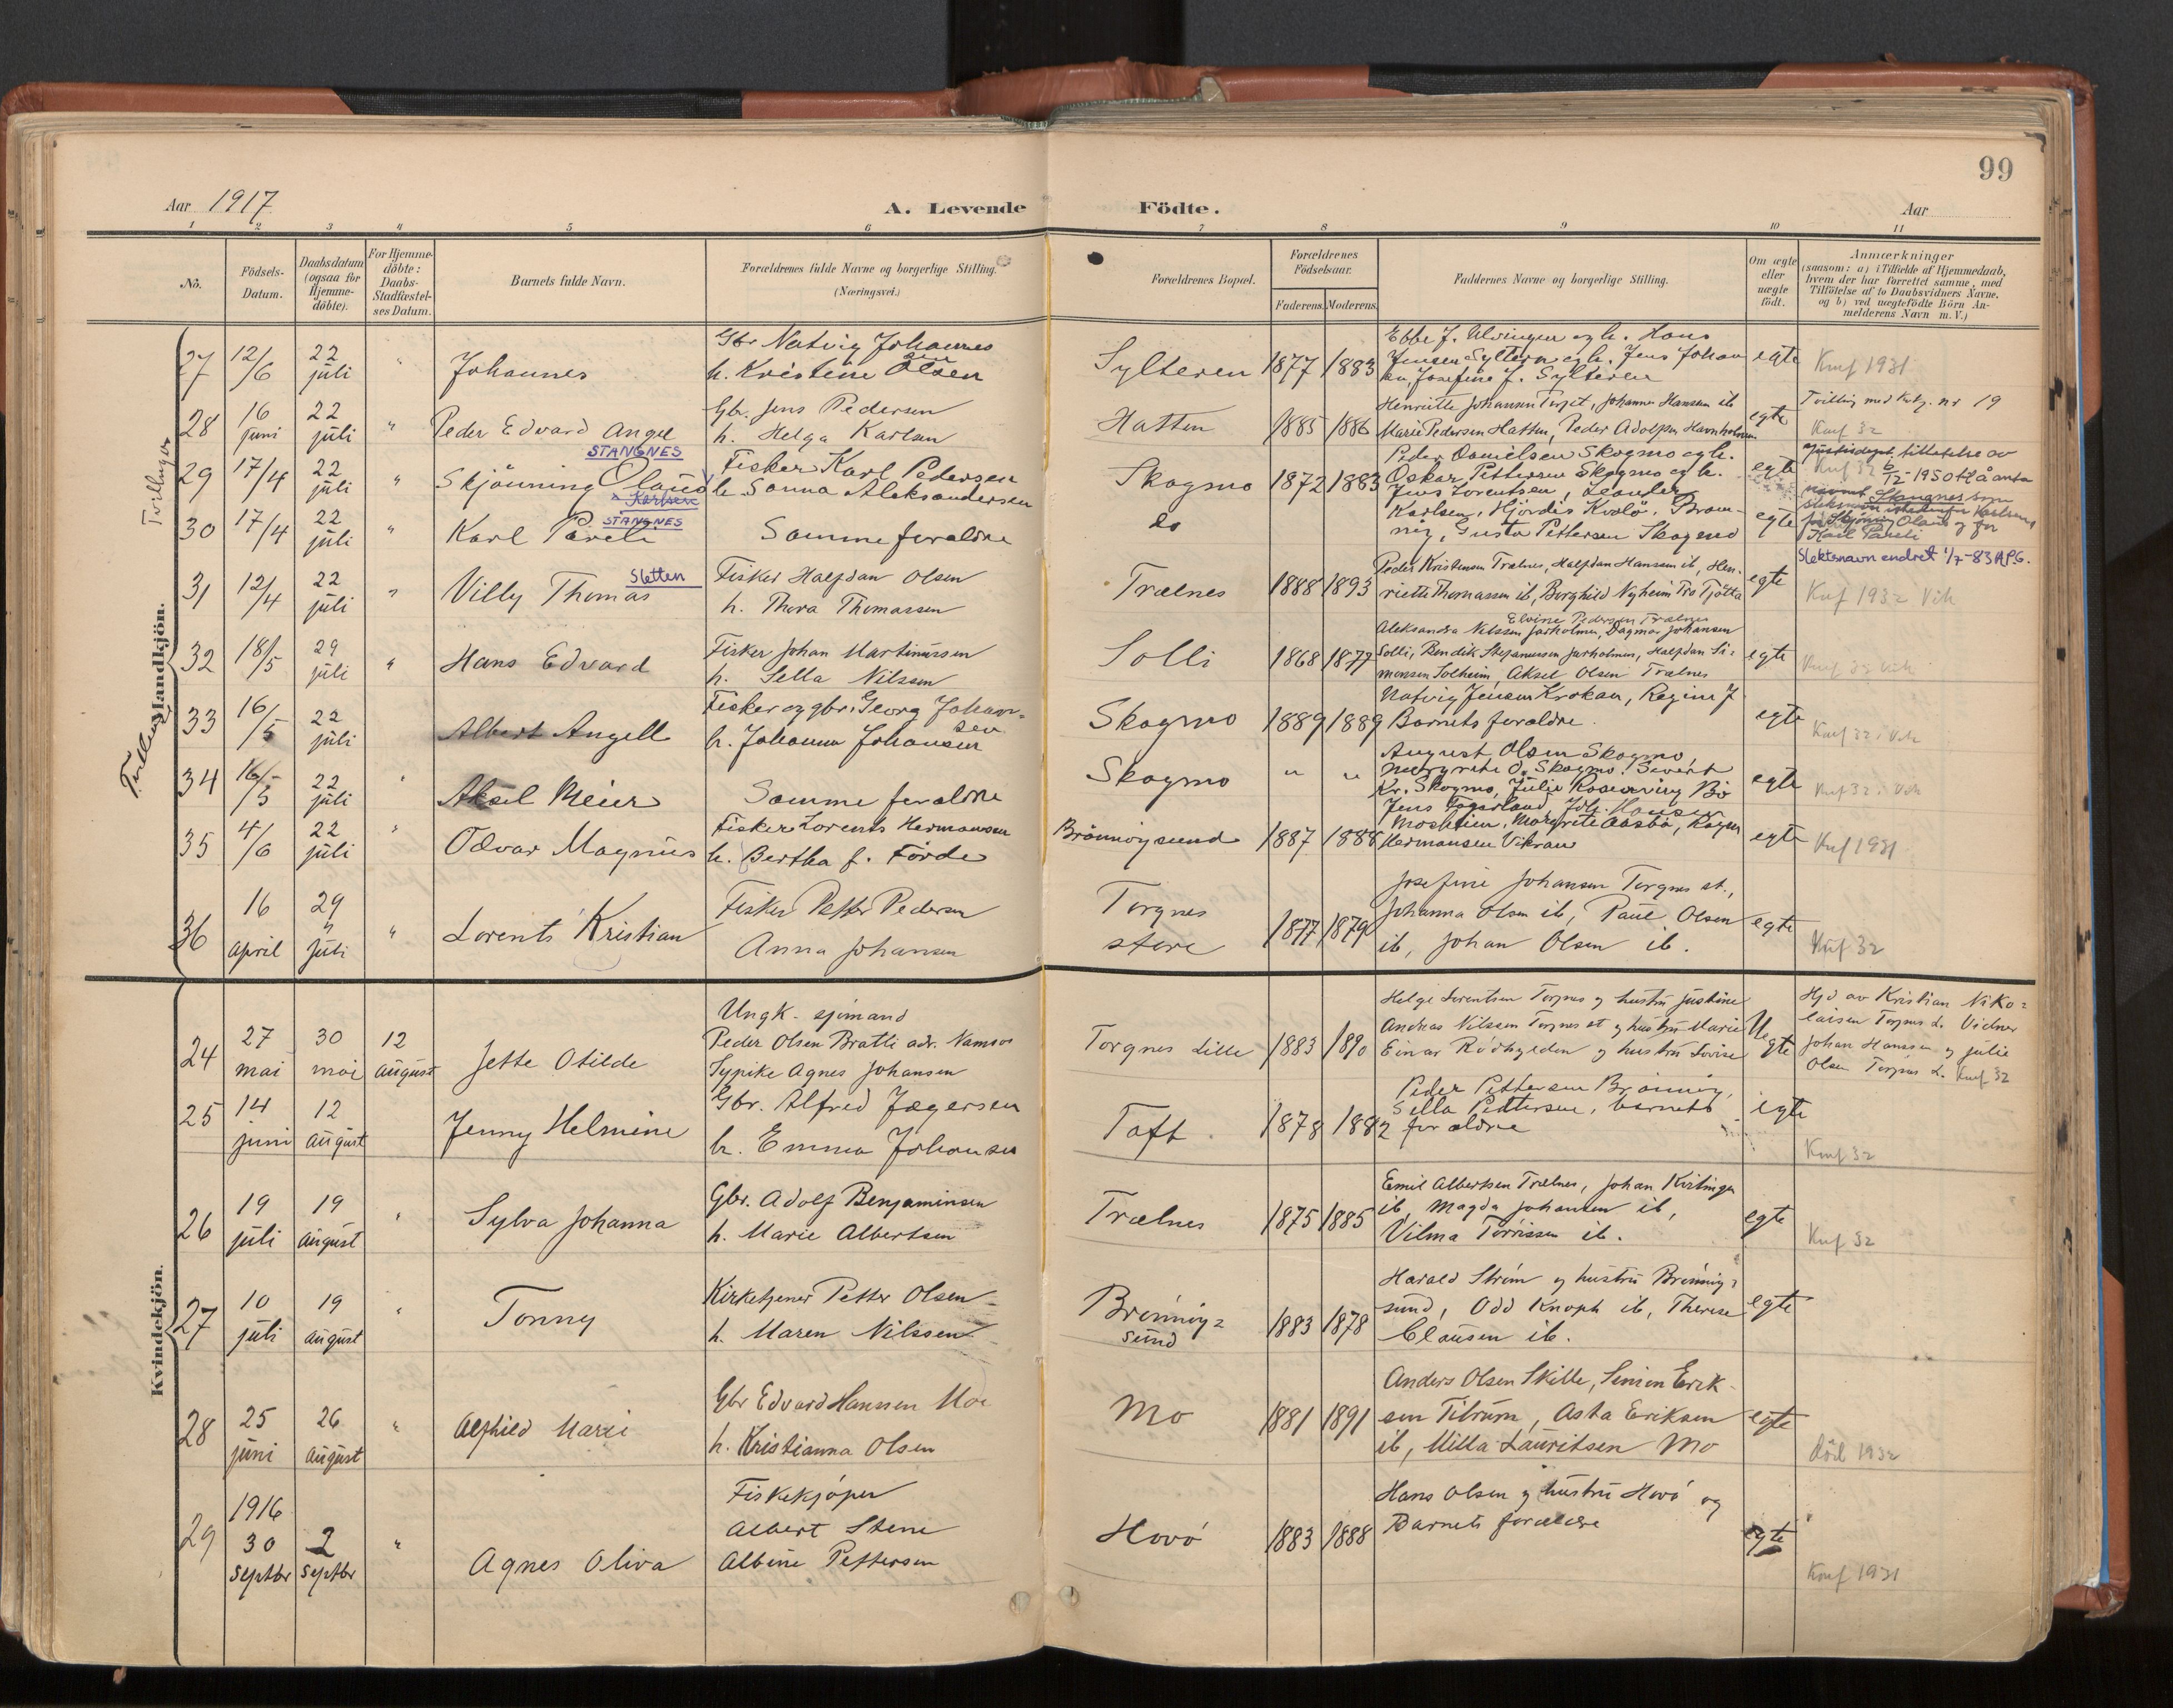 99
Aar 1917
A. Levende Födte.
Aar
1 2 3 4 5 6 7 8 9 10 11
No.
Födsels-Datum.
Daabsdatum (ogsaa for Hjemme-döbte).
For Hjemme-döbte: Daabs-Stadfæstel-ses Datum.
Barnets fulde Navn.
Forældrenes fulde Navne og borgerlige Stilling.
(Næringsvei.)
Forældrenes Bopæl.
Forældrenes Födselsaar.
Faderens. Moderens.
Faddernes Navne og borgerlige Stilling.
Om ægte eller uægte födt.
Anmærkninger
(saasom: a) i Tilfælde af Hjemmedaab,
hvem der har forrettet samme, med
Tilföielse af to Daabsvidners Navne,
og b) ved uægtefödte Börn An-
melderens Navn m. V.)
Mandkjön.
Tvillinger
Tvillinger
27 12/6 22 juli " Johannes
Gbr Natvig Johannes
sen
h. Kristine Olsen
Sylteren 1877 1883
Ebbe J. Alvingen og h. Hans
Jensen Sylteren og h. Jens Johan
sen, Josefine J. Sylteren
egte Knf 1931
28 16 juni 22 juli " Peder Edvard Angel
Gbr. Jens Pedersen
h. Helga Karlsen
Hatten 1885 1886
Henriette Johansen Torget, Johannes Hanssen ib
Marie Pedersen Hatten, Peder Adolfsen Havnholmen
egte
Tvilling med Kvkj. nr 19
Knf 32
29 17/4 22 juli " Skjönning Olaus
STANGNES
Karlsen
Fisker Karl Pedersen
h. Sanna Aleksandersen
Skogmo 1872 1883
Peder Danielsen Skogmo og h.
Oskar Pettersen Skogmo og h.
Jens Lorentsen, Leander
Karlsen, Hjördis Kvalö, Brøn-
nöy, Gusta Pettersen Skogmo
egte
Justisdept. tillatelse av
Knf 32 6/12-1950 til å anta
navnet Stangnes som
slektsnavn istedenfor Karlsen,
for Skjönning Olaus og for
Karl Pareli
30 17/4 22 juli " Karl Pareli
STANGNES
Samme foraldre
do
egte
31 12/4 22 juli " Villy Thomas
Sletten
Fisker Halfdan Olsen
h. Thora Thomassen
Trælnes 1888 1893
Peder Kristensen Trælnes, Halfdan Hanssen ib, Hen-
riette Thomassen ib, Borghild Nyheim Tro Tjötta
egte
Slektsnavn endret 1/7-83 APG.
Knf 1932 Vik
32 18/5 29 juli " Hans Edvard
Fisker Johan Martinussen
h. Sella Nilssen
Solli 1868 1877
Elvine Pedersen Trælnes
Aleksandra Nilssen Jarholmen, Dagmar Johansen
Solli, Bendik Stefanussen Jarholmen, Halfdan Si-
monsen Solheim, Aksel Olsen Trælnes
egte Knf 32 Vik
33 16/5 22 juli Albert Angell
Fisker og gbr. Georg Johan-
sen
h. Johanna Johansen
Skogmo 1889 1889
Natvig Jensen Krokan, Regine J
Barnets foraldre.
egte Knf 32 i Vik
34 16/5 22 juli " Aksel Meier
Samme foraldre
Skogmo " "
August Olsen Skogmo,
Margrete O. Skogmo. Sivert
Kr. Skogmo, Julie Rosenvinge Bö
egte Knf 32 i Vik
35 4/6 22 juli " Odvar Magnus
Fisker Lorents Hermansen
h. Bertha f. Förde
Brønnöysund 1887 1888
Jens Fagerland, Joh. Hans
Mosheim, Margrete Aasbö, Kasper
Hermansen Vikran
egte Knf 1931
36 16 april 29 juli " Lorents Kristian
Fisker Petter Pedersen
Anna Johansen
Torgnes
store
1877 1879
Josefine Johansen Torgnes st.,
Johanna Olsen ib, Paul Olsen
ib, Johan Olsen ib.
egte Knf 32
Kvindekjön.
24 27 mai 30 mai 12 august Jette Otilde
Ungk. sjømand
Peder Olsen Bratli adr. Namsos
Sypike Agnes Johansen
Torgnes Lille 1883 1890
Helge Lorentsen Torgnes og hustru Justine
Andreas Nilssen Torgnes st og hustru Marie
Einar Rödhylden og hustru Lovise
Uegte
Hjd av Kristian Niko-
laisen Torgnes L. Vidner
Johan Hanssen og Julie
Olsen Torgnes L. Knf 32
25 14 juni 12 august Jenny Helmine
Gbr. Alfred Jægersen
h. Emma Johansen
Toft 1878 1882
Peder Pettersen Brønnöy,
Sella Pettersen, barnets
foraldre
egte Knf 32
26 19 juli 19 august " Sylva Johanna
Gbr. Adolf Benjaminsen
h. Marie Albertsen
Trælnes 1875 1885
Emil Albertsen Trælnes, Johan Kvitingen
ib, Magda Johansen ib,
Vilma Torrissen ib.
egte Knf 32
27 10 juli 19 august " Tonny
Kirketjener Petter Olsen
h. Maren Nilssen
Brønnöy-
sund
1883 1878
Harald Strøm og hustru Brønnöy-
sund, Odd Knoph ib, Therese
Clausen ib.
egte
28 25 juni 26 august " Alfhild Marie
Gbr Edvard Hanssen Moe
h. Kristianna Olsen
Mo 1881 1891
Anders Olsen Skille, Simon Erik-
sen Tilrum, Asta Eriksen
ib, Milla Lauritsen Mo
egte död 1932
29 1916 30 septbr 2 septbr " Agnes Oliva
Fiskekjøper
Albert Stene
Albine Pettersen
Hovö 1883 1888
Hans Olsen og hustru Hovö og
Barnets forældre
egte Konf 1931